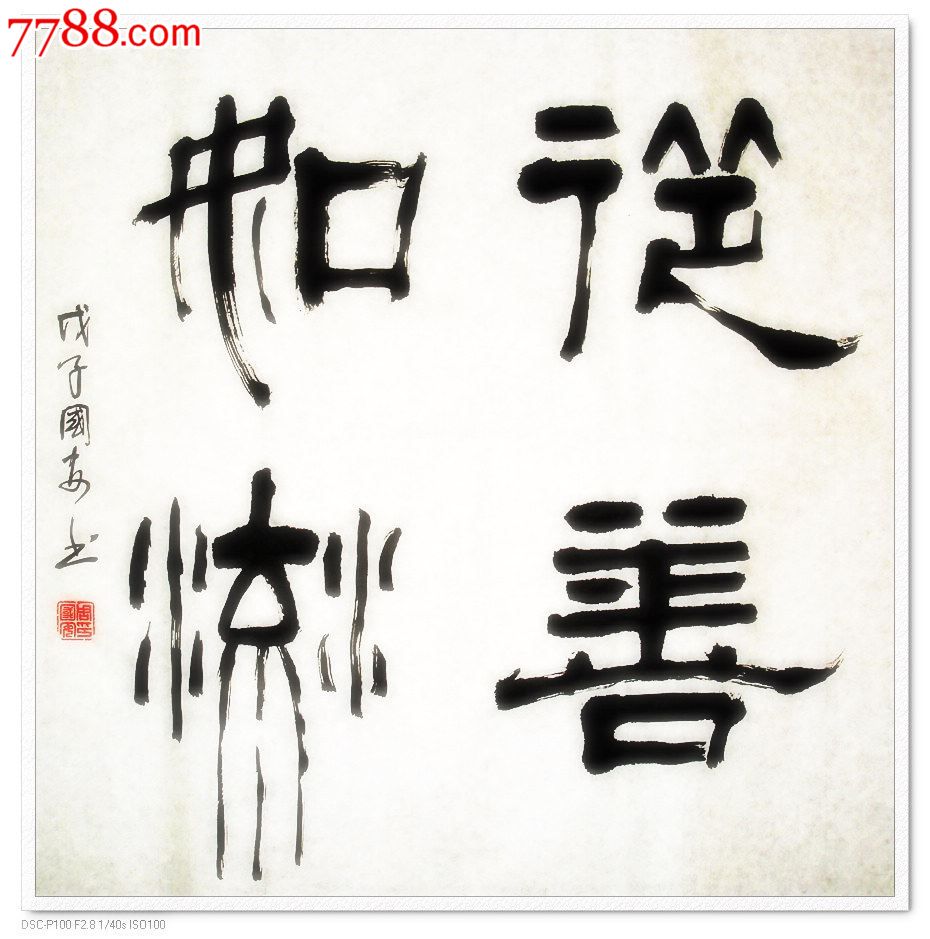 7788.com
從善
如流
戊子國安书
DSC-P100 F2.8 1/40s ISO100